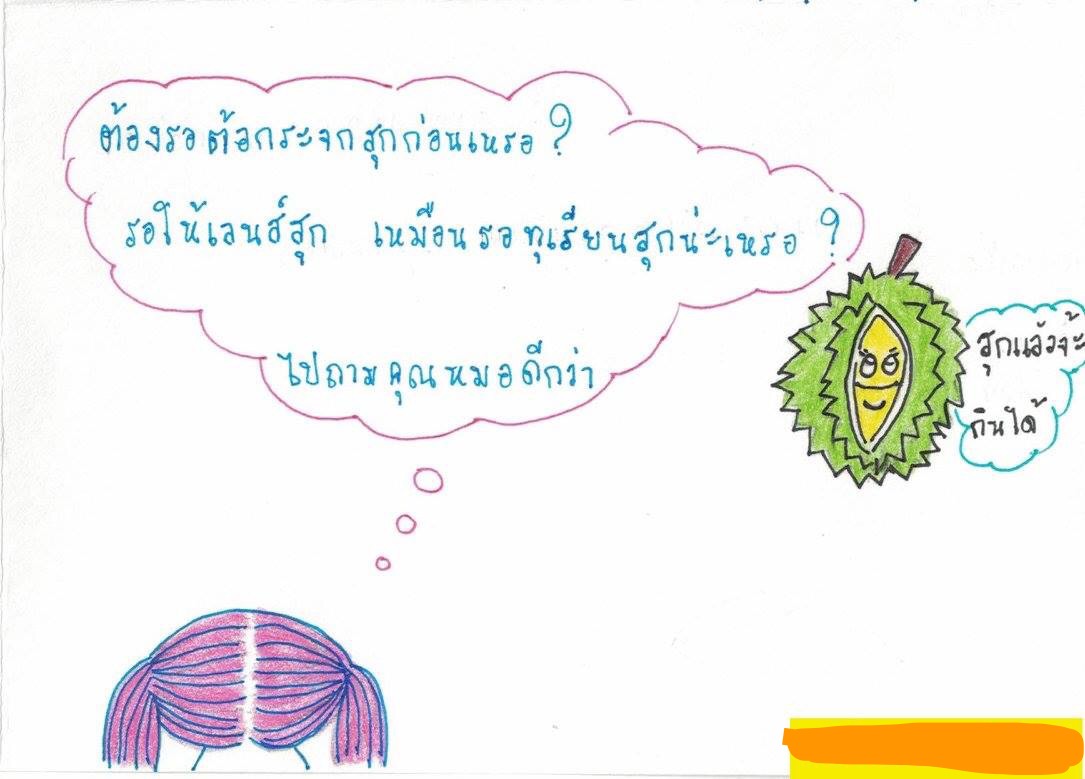 ต้องรอต้อกระจกสุกก่อนเหรอ?
รอให้เลนส์สุก เหมือนรอทุเรียนสุกน่ะเหรอ?
ไปถามคุณหมอดีกว่า
สุกแล้วจ้ะ
กินได้